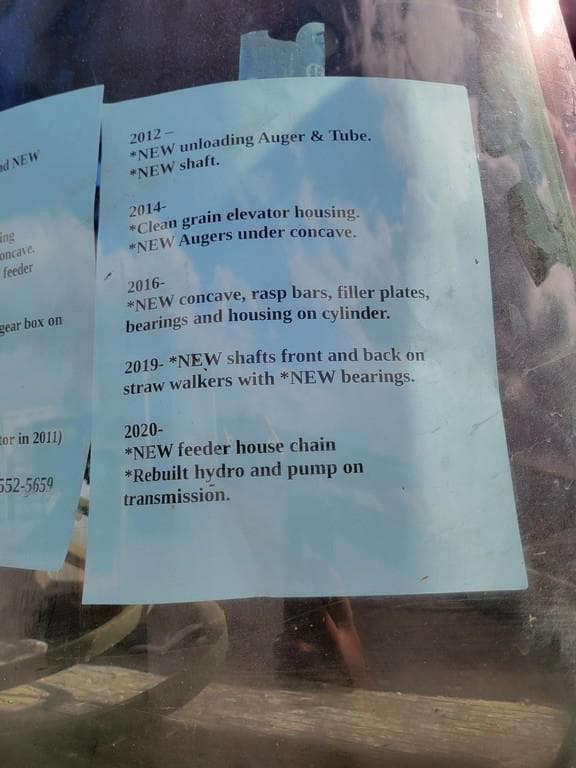 nd NEW
ing
oncave.
feeder
gear box on
tor in 2011)
552-5659
2012 –
*NEW unloading Auger & Tube.
*NEW shaft.
2014-
*Clean grain elevator housing.
*NEW Augers under concave.
2016-
*NEW concave, rasp bars, filler plates,
bearings and housing on cylinder.
2019- *NEW shafts front and back on
straw walkers with *NEW bearings.
2020-
*NEW feeder house chain
*Rebuilt hydro and pump on
transmission.